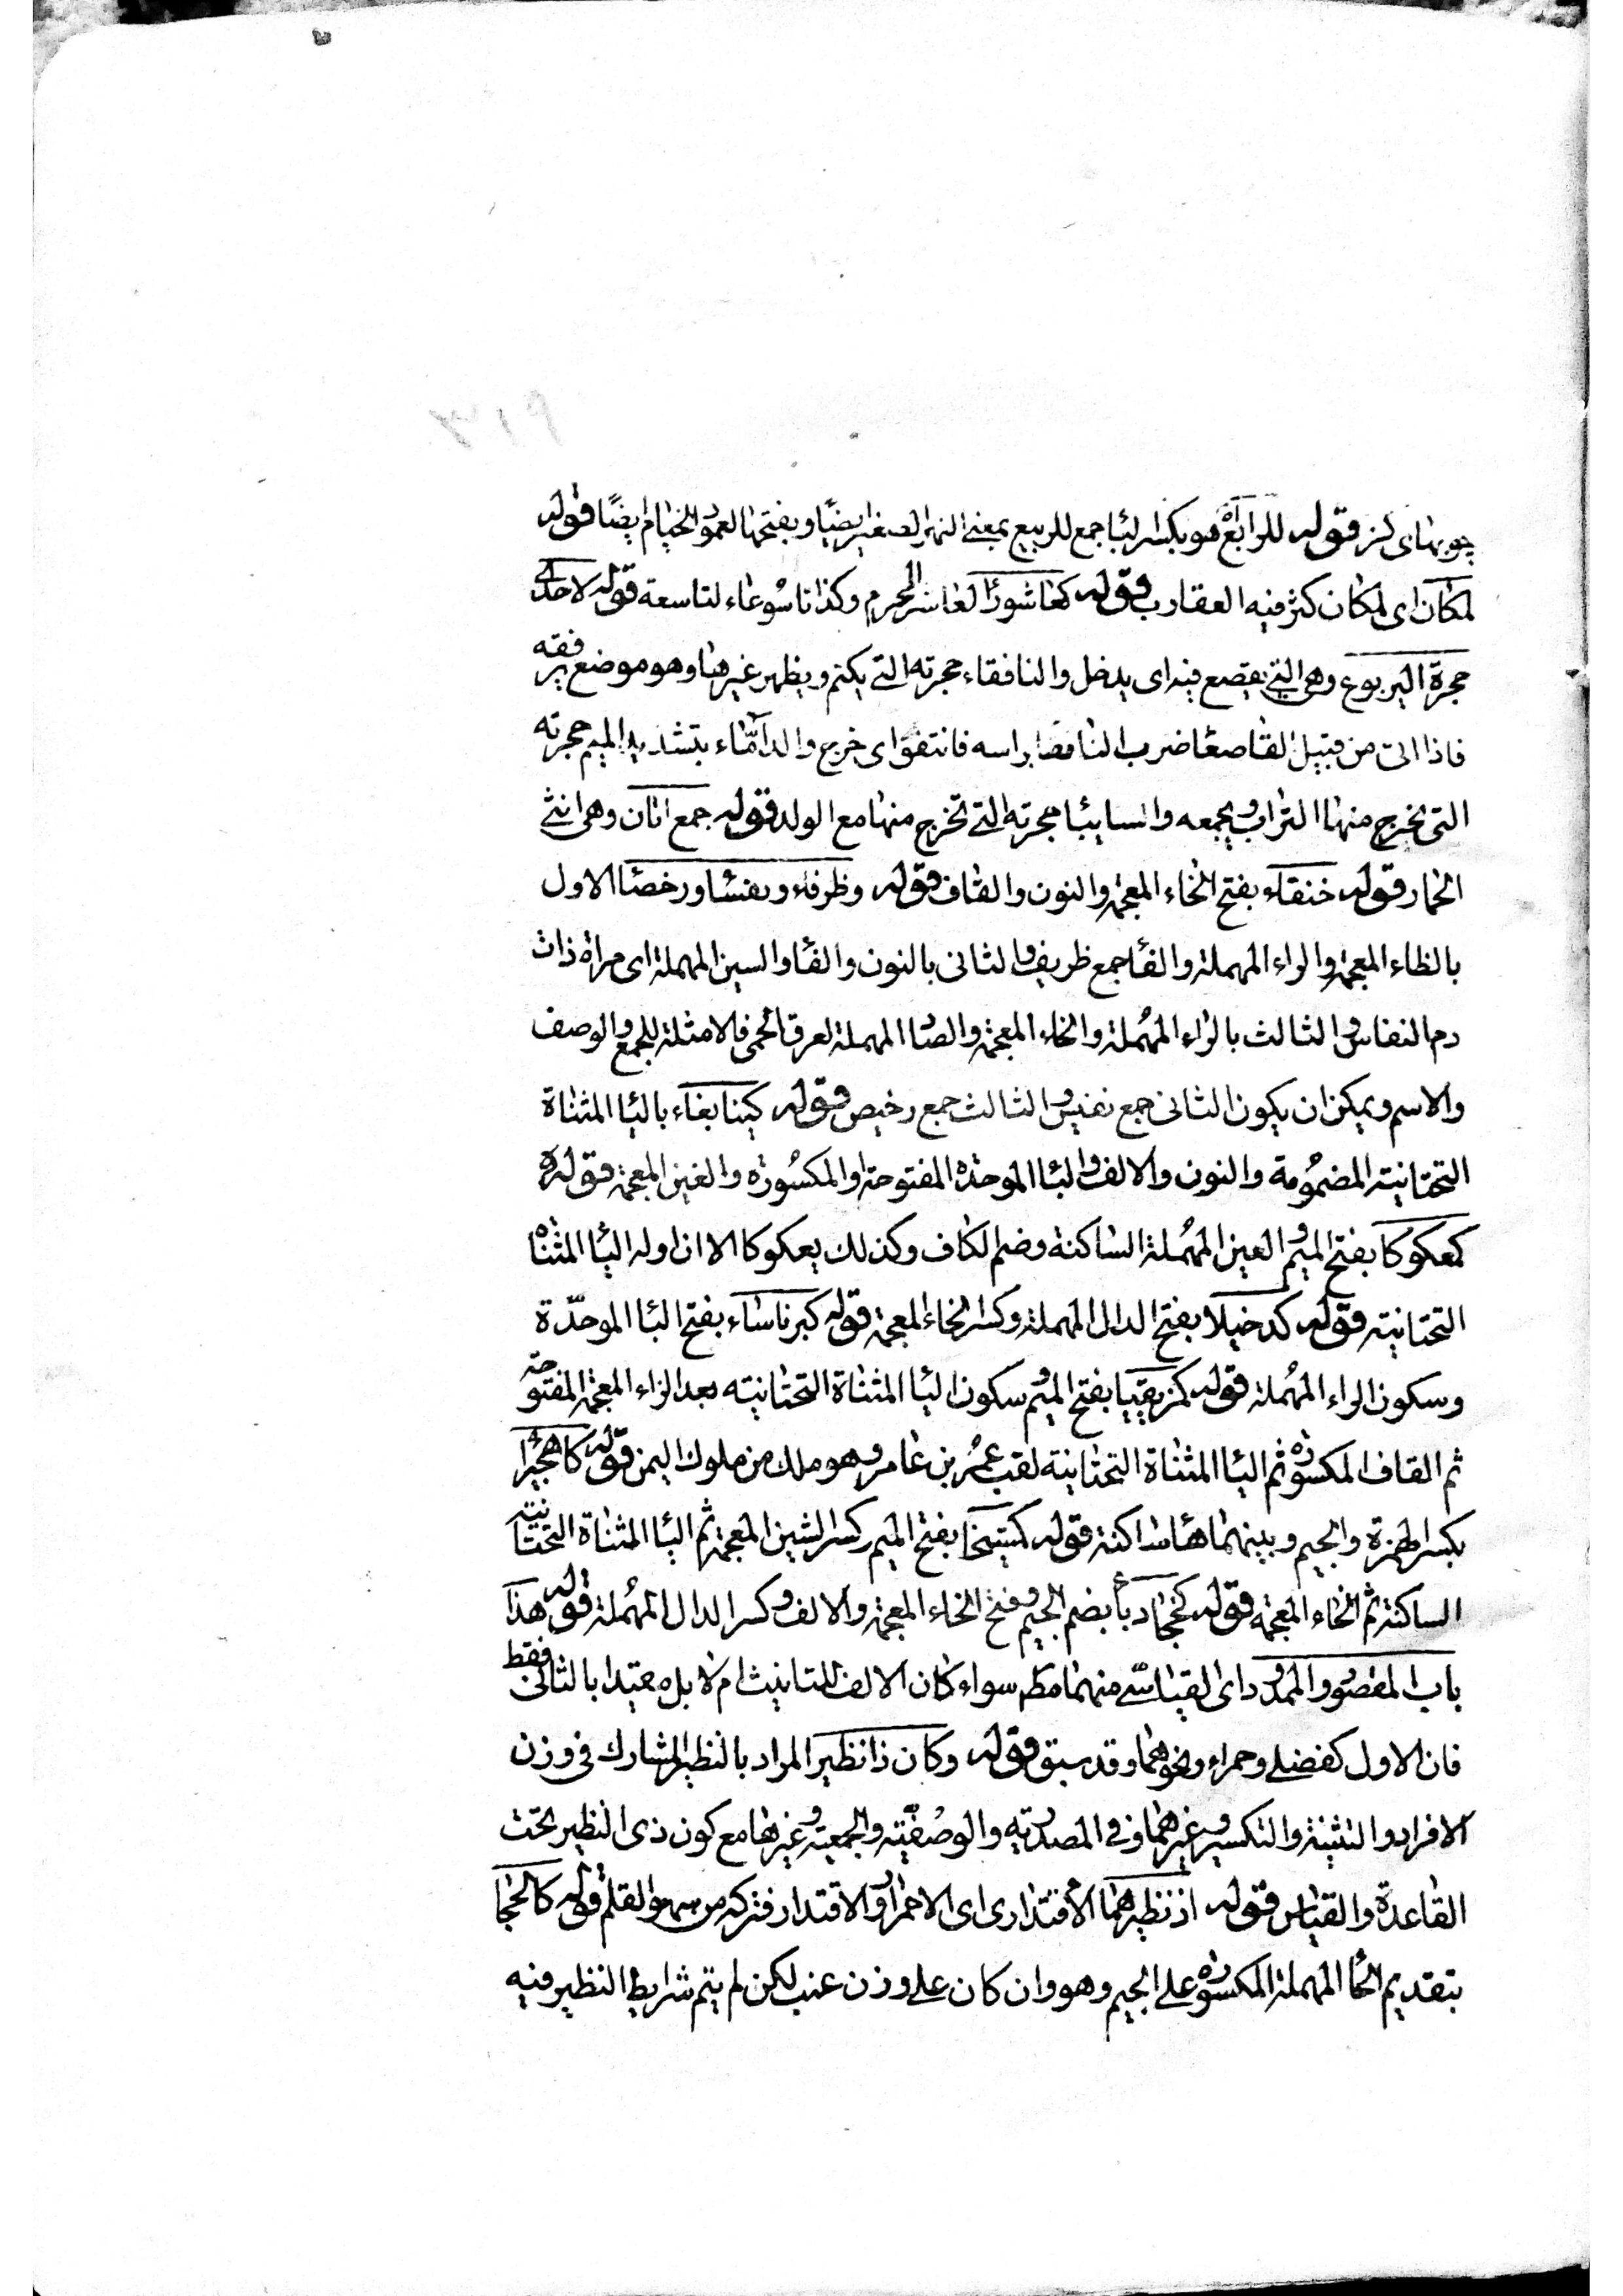 چوبهای کز قوله للرابع هو بکسر لبا جمع للربیع بمعنی النهر الصغیر ایضا و بفتحها لعمود الخیام ایضا قوله
لمکان ای لمکان کثر فیه العقارب قوله کعاشورا لعاشر المحرم وکذا تاسوعاء لتاسعة قوله لاحدی
حجرة الیربوع وهی التی یقصع فیه ای یدخل والنافقاء حجرته التی یکتم ویظهر غیرها وهو موضع یرفقه
فاذا اتی من قبیل القاصعا ضرب النافقا براسه فانتفق ای خرج والدامّاء بتشدید المیم حجرته
التی یخرج منها التراب ویجمعه والسابیا حجرته التی تخرج منها مع الولد قوله جمع اتان وهی انثی
الحمار قوله خنقاء بفتح الخاء المعجمة والنون والقاف قوله وظرفاء ونفسا ورخصا الاول
بالظاء المعجمة والراء المهملة والفا جمع ظریف والثانی بالنون والفا والسین المهملة ای مراة ذات
دم النفاس والثالث بالراء المهملة والخاء المعجمة والصاد المهملة لعرق الحمی فالامثلة للجمع والوصف
والاسم ویمکن ان یکون الثانی جمع نفیس والثالث جمع رخیص قوله کینابغاء بالیا المثناة
التحتانیة المضمومة والنون والالف والبا الموحدة المفتوحة او المکسورة والغین المعجمة قوله
کمعکوکا بفتح المیم والعین المهملة الساکنة وضم الکاف وکذلک بعکوکا الا ان اوله الیا المثناة
التحتانیة قوله کدخیلا بفتح الدال المهملة وکسر الخاء المعجمة قوله کبرناساء بفتح البا الموحدة
وسکون الراء المهملة قوله کمزیقیا بفتح المیم و سکون الیا المثناة التحتانیته بعد الزاء المعجمة المفتوحة
ثم القاف المکسورة ثم الیا المثناة التحتانیة لقب عمر بن عامر وهو ملک من ملوک الیمن قوله کاهجیرا
بکسر الهمزة والجیم وبینهما هاء ساکنة قوله کمشیخا بفتح المیم وکسر الشین المعجمة ثم الیا المثناة التحتانیة
الساکنة ثم الخاء المعجمة قوله کجخادبا بضم الجیم وفتح الخاء المعجمة والالف وکسر الدال المهملة قوله هذا
باب المقصور والممدود ای القیاسی منهما مطم سواء کان الالف للتانیث ام لا بل مقیدا بالثانی فقط
فان الاول کفضلی وحمراء ونحوهما وقد سبق قوله وکان ذا نظیر المراد بالنظیر المشارک فی وزن
الافراد والتثنیة والتکسیر وغیرهما وفی المصدریة والوصفیة والجمعیة وغیرها مع کون ذی النظیر تحت
القاعدة والقیاس قوله اذ نظیرهما الاقتداری ای الاحمرار والاقتدار فترکه من سهو القلم قوله کالحجا
بتقدیم الحا المهملة المکسورة علی الجیم وهو وان کان علی وزن عنب لکن لم یتم شرایط النظیر فیه